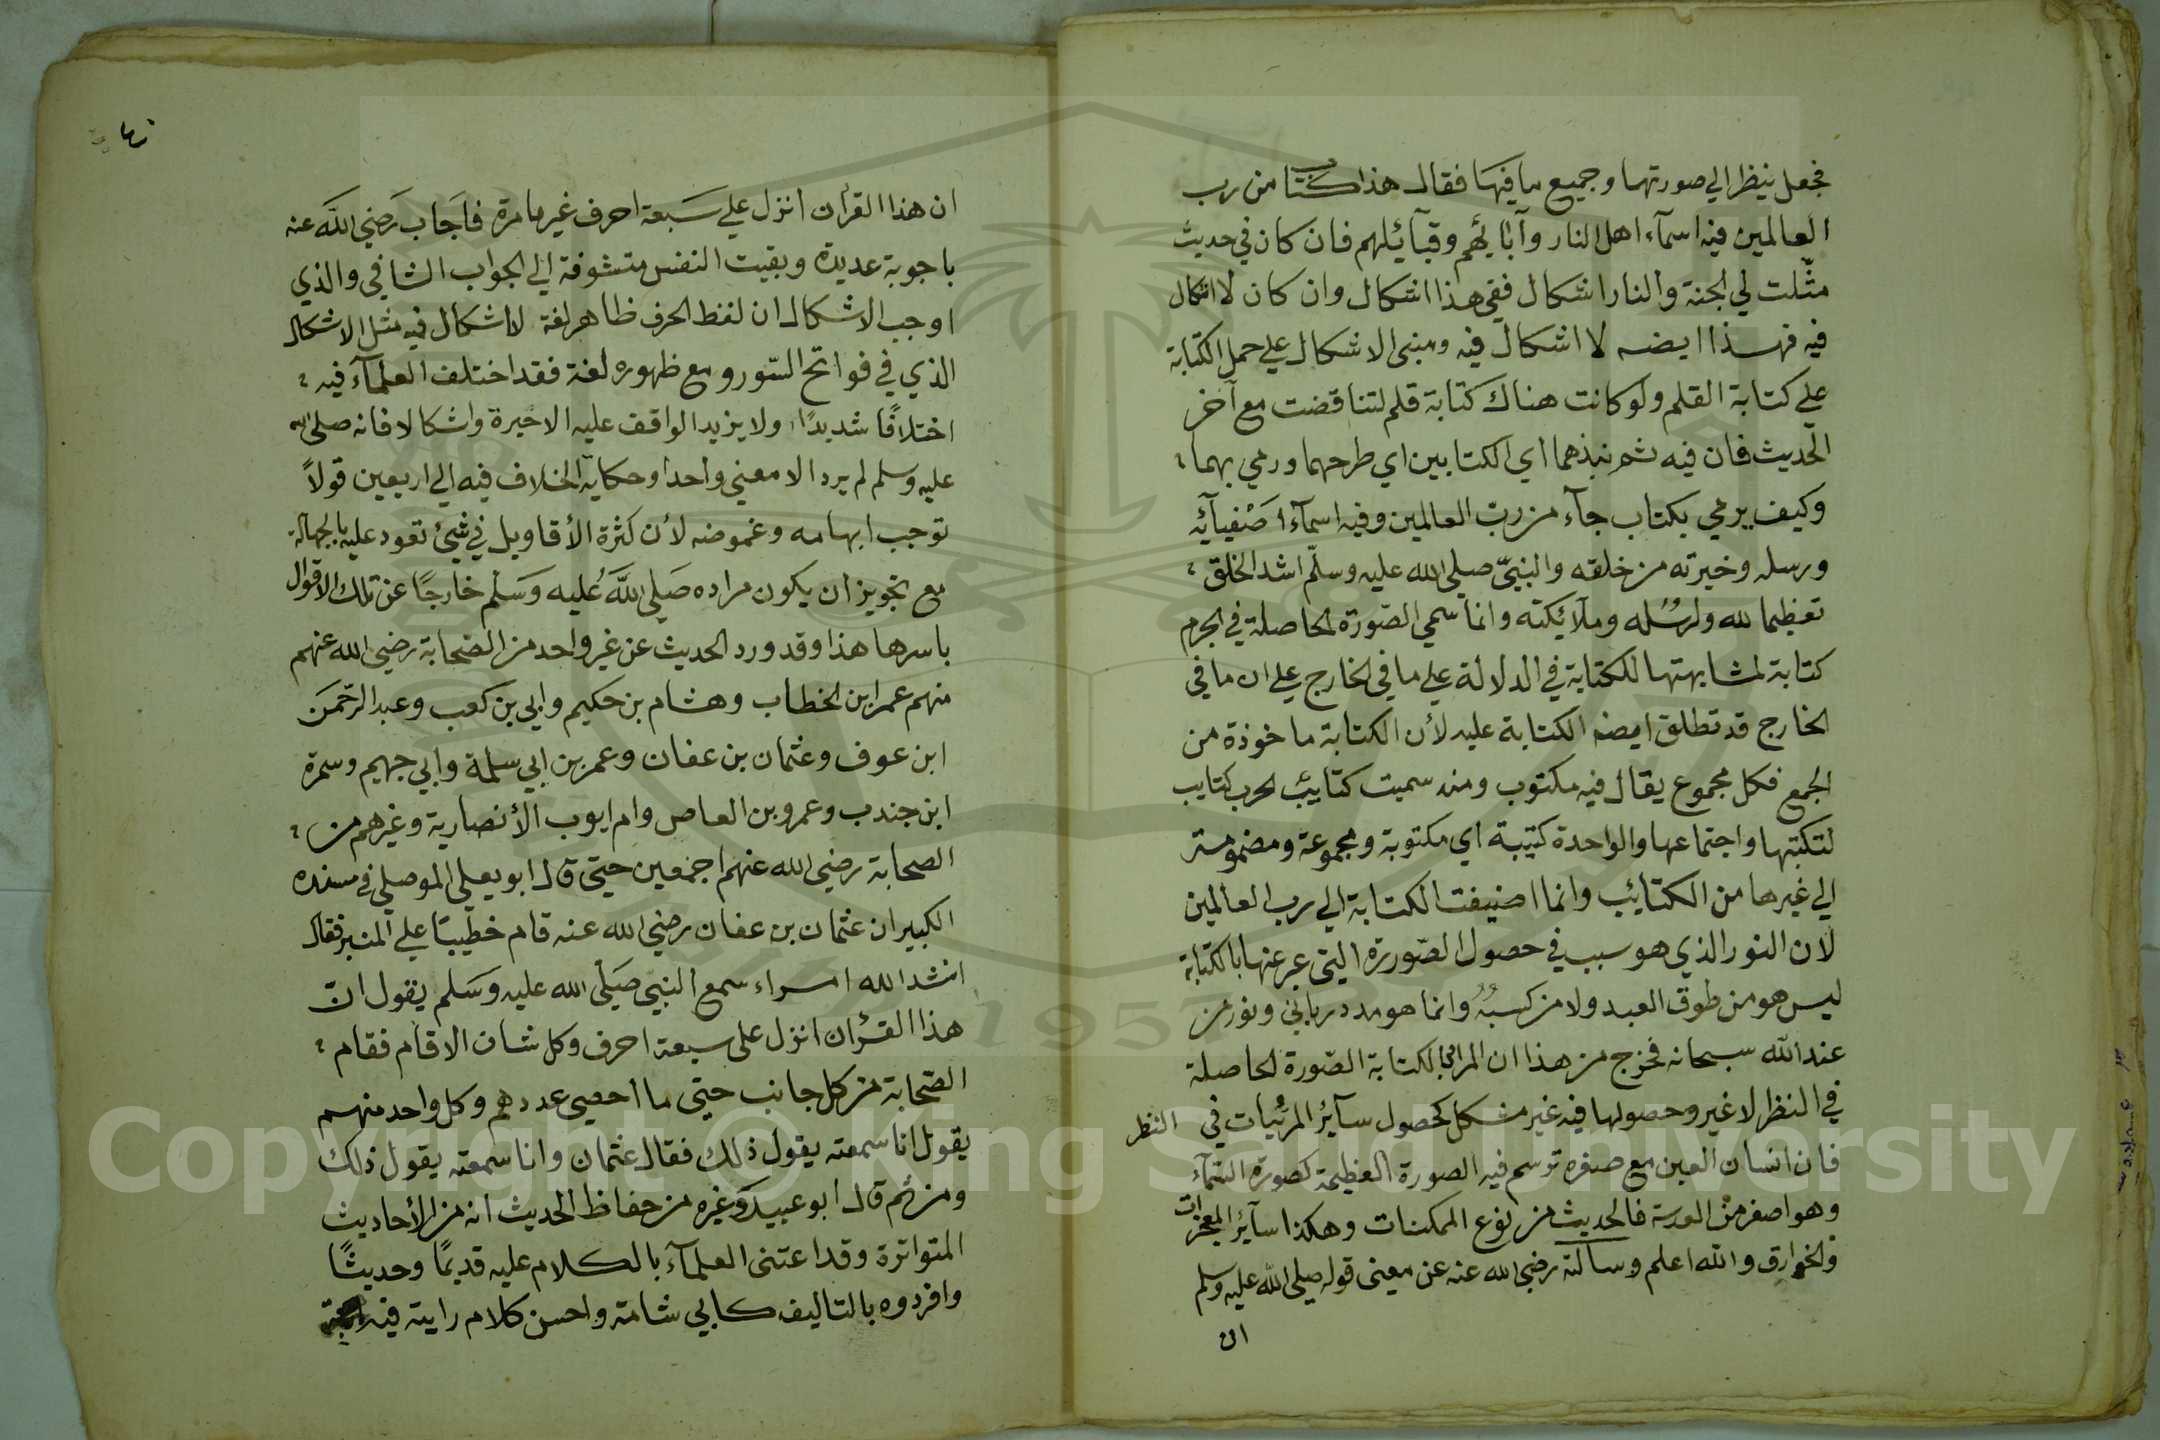 فجعل ينظر الي صورتهما وجميع ما فيها فقال هذا كتاب من رب
العالمين فيه اسمآء اهل النار وآبائهم وقبآئلهم فان كان في حديث
مثّلت لي الجنة والنار اشكال ففي هذا اشكال وان كان لا اشكال
فيه فهذا ايضه لا اشكال فيه ومبنى الاشكال علي حمل الكتابة
علي كتابة القلم ولو كانت هناك كتابة قلم لتناقضت مع آخر
الحديث فان فيه ثم نبذهما اي الكتابين اي طرحهما ورمي بهما
وكيف يرمي بكتاب جآء من ربّ العالمين وفيه اسمآء اصفيآئه
ورسله وخيرته من خلقه والنبيّ صلي الله عليه وسلّم اشد الخلق
تعظيما لله ولرسُله وملآئكته وانما سمي الصّورة الحاصلة في الجرم
كتابة لمشابهتها للكتابة في الدلالة علي ما في الخارج علي ان ما في
الخارج قد تطلق ايضه الكتابة عليه لأن الكتابة ماخوذة من
الجمع فكل مجموع يقال فيه مكتوب ومنه سميت كتائب الحرب كتايب
لتكتبها واجتماعها والواحدة كتيبة اي مكتوبة ومجموعة ومضمومة
الي غيرها من الكتائب وانما اضيفت الكتابة الي رب العالمين
لان النور الذي هو سبب في حصول الصّورة التي عبر عنها بالكتابة
ليس هو من طوق العبد ولا من كسبه وانما هو مدد رباني ونور من
عند الله سبحانه فخرج من هذا ان المراد بالكتابة الصّورة الحاصلة
في النظر لا غير وحصولها فيه غير مشكل كحصول سآئر المرئيات في النظر
فان انسان العين مع صغره ترسم فيه الصورة العظيمة كصورة السّمآء
وهو اصغر من العدسة فالحديث من نوع الممكنات وهكذا سآئر المعجزات
والخوارق والله اعلم وسألته رضي الله عنه عن معنى قوله صلي الله عليه وسلم
ان
ان هذا القرآن انزل علي سَبعة احرف غير ما مرة فاَجَاب رَضي اللَه عنه
باجوبة عديدة وبقيت النفس متشوفة الي الجواب الشافي والذي
اوجب الاشكال ان لفظ الحرف ظاهر لغة لا اشكال فيه مثل الاشكال
الذي في فواتح السّور ومع ظهوره لغة فقد اختلف العلمآء فيه
اختلافًا شديدًا ولا يزيد الواقف عليه الا حيرة واشكالا فانه صلى الله
عليه وسلم لم يرد الا معني واحدا وحكاية الخلاف فيه الي اربعين قولاً
توجب ابهامه وغموضه لأن كثرة الأقاويل في شيئ تعود عليه بالجهالة
مع تجويز ان يكون مراده صَلي اللَه عُليه وَسَلم خارجًا عن تلك الاقوال
باسرها هذا وقد ورد الحديث عن غير واحد من الصّحابة رضي الله عنهم
منهم عمر ابن الخطاب وهشام بن حكيم وابي بن كعب وعبد الرّحمَن
ابن عوف وعثمان بن عفان وعمر بن ابي سلمة وابي جهيم وسمرة
ابن جندب وعمرو بن العاص وام ايوب الأنصارية وغيرهم من
الصحابة رضي الله عنهم اجمعين حتي قال ابو يعلي الموصلي في مسنده
الكبير ان عثمان بن عفان رضي الله عنه قام خطيبًا علي المنبر فقال
انشد الله امراء سمع النبي صَلّي الله عليه وَسَلم يقول انّ
هذا القرأن انزل على سبعة احرف وكل شاف الا قام فقام
الصّحابة من كل جانب حتي ما احصي عددهم وكل واحد منهم
يقول انا سمعته يقول ذلك فقال عثمان وانا سمعته يقول ذلك
ومن ثم قال ابو عبيد وَغيره من حفاظ الحديث انه من الأحاديث
المتواترة وقد اعتنى العلمآء بالكلام عليه قديمًا وحديثًا
وافردوه بالتاليف كابي شامة واحسن كلام رايته فيه
Copyright © King Saud University
1957